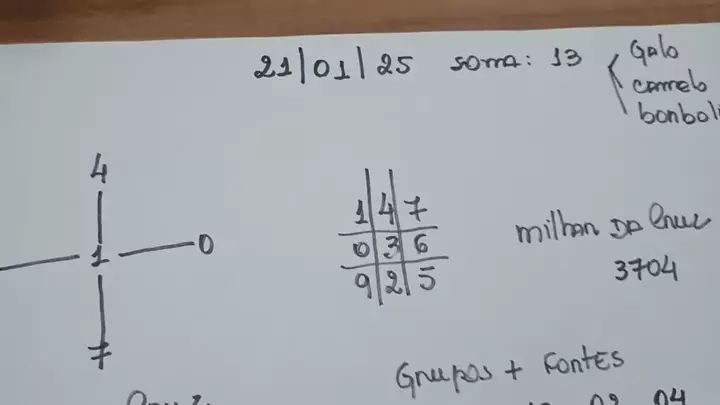 21/01/25 soma: 13
Galo
camelo
4
1 0
7
1 4 7
0 3 6
9 2 5
milhar DA Cruz
3704
Grupos + Fontes
04